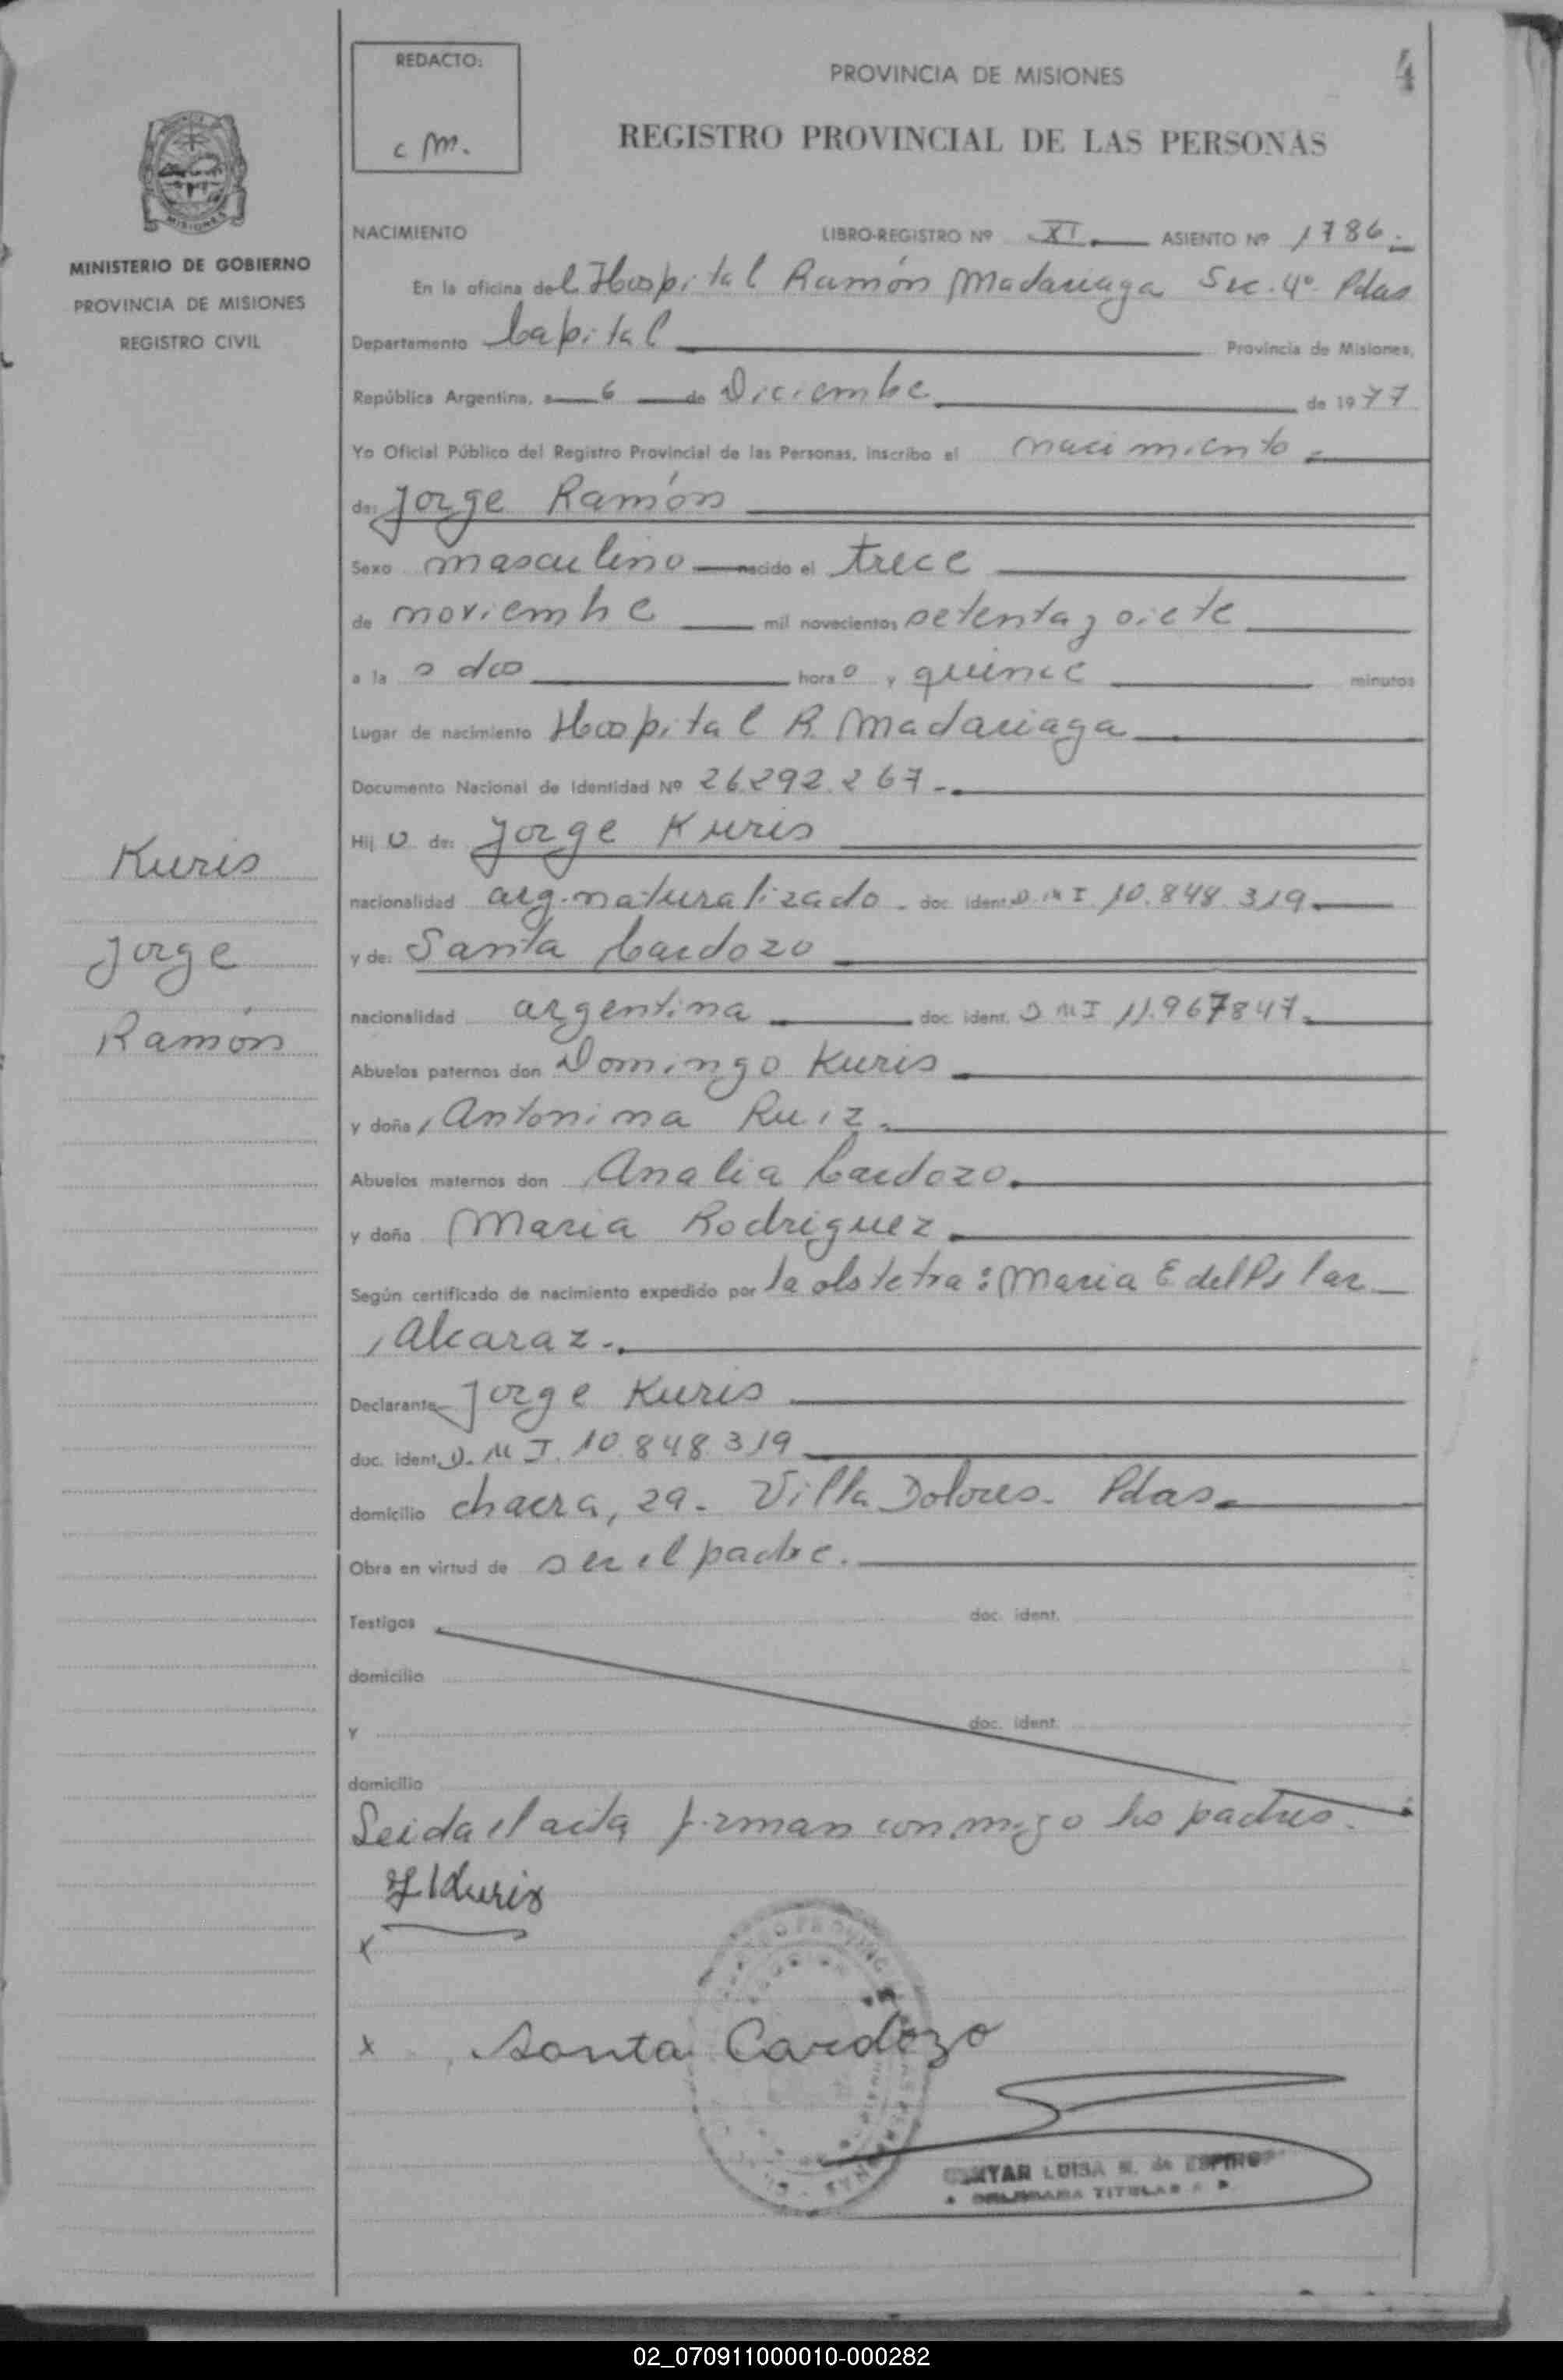 REDACTO:
c m.
PROVINCIA DE MISIONES
4
REGISTRO PROVINCIAL DE LAS PERSONAS
MISIONES
MINISTERIO DE GOBIERNO
PROVINCIA DE MISIONES
REGISTRO CIVIL
NACIMIENTO LIBRO-REGISTRO Nº XI ASIENTO Nº 1786.
En la oficina del Hospital Ramón Madariaga Sec. 4º Pdas
Departamento Capital Provincia de Misiones,
República Argentina, a 6 de Diciembre de 1977
Yo Oficial Público del Registro Provincial de las Personas, inscribo el nacimiento
de: Jorge Ramón
Sexo masculino nacido el trece
de noviembre mil novecientos setenta y siete
a la s dos hora s y quince minutos
Lugar de nacimiento Hospital R. Madariaga
Documento Nacional de Identidad Nº 26.292.267.-
Hij o de: Jorge Kuris
nacionalidad arg. naturalizado. doc. ident. D.N.I. 10.848.319
y de: Santa Cardozo
nacionalidad argentina doc. ident. D N I 11.967847.
Abuelos paternos don Domingo Kuris
y doña Antonina Ruiz.
Abuelos maternos don Analia Cardozo.
y doña Maria Rodriguez
Según certificado de nacimiento expedido por la obstetra: Maria E del Pilar
Alcaraz.
Declarante Jorge Kuris
doc. ident. D.N.I. 10.848.319
domicilio chacra, 29. Villa Dolores. Pdas.
Obra en virtud de ser el padre.
Testigos doc. ident.
domicilio
y doc. ident.
domicilio
Leida el acta firman conmigo los padres.
J Kuris
x
x Santa Cardozo
LUISA M. de ESPINO
TITULAR
Kuris
Jorge
Ramón
02_070911000010-000282